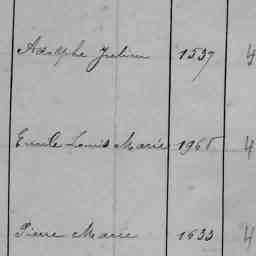 Adolphe Julien 1537 4
Emile Louis Marie 1965 4
Pierre Marie 1633 4